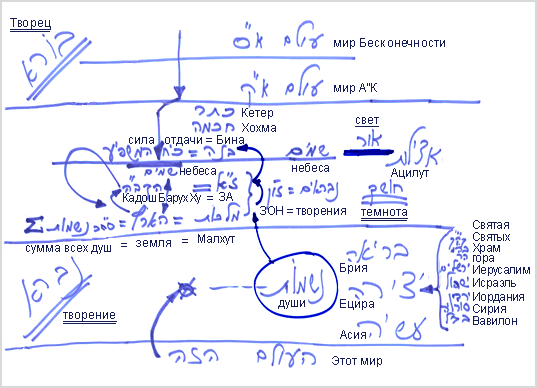 Творец
בורא
עולם א"ס мир Бесконечности
עולם א"ק мир А"К
כתר Кетер
חכמה Хохма
свет
сила отдачи = Бина
בינה = כח המשפיע
שמים
אור
אצילות
небеса
Ацилут
שמים
небеса
ז"א = הקב"ה
КадошБарухХу = ЗА
זו"ן = נבראים
ЗОН = творения
חושך
темнота
Σ מלכות = הארץ = סה"כ נשמות
сумма всех душ = земля = Малхут
נברא
творение
בריאה
Брия
נשמות
души
יצירה
Ецира
עשיה
Асия
Святая
Святых
Храм
гора
Иерусалим
Исраэль
Иордания
Сирия
Вавилон
העולם הזה Этот мир